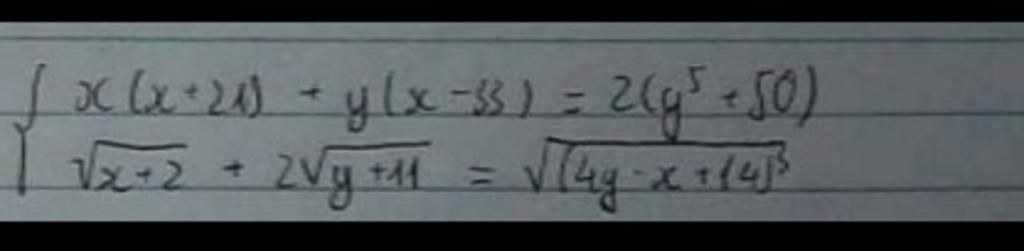 x(x+21) + y(x-33) = 2(y⁵+50)
√(x+2) + 2√(y+11) = √((4y-x+14)³)